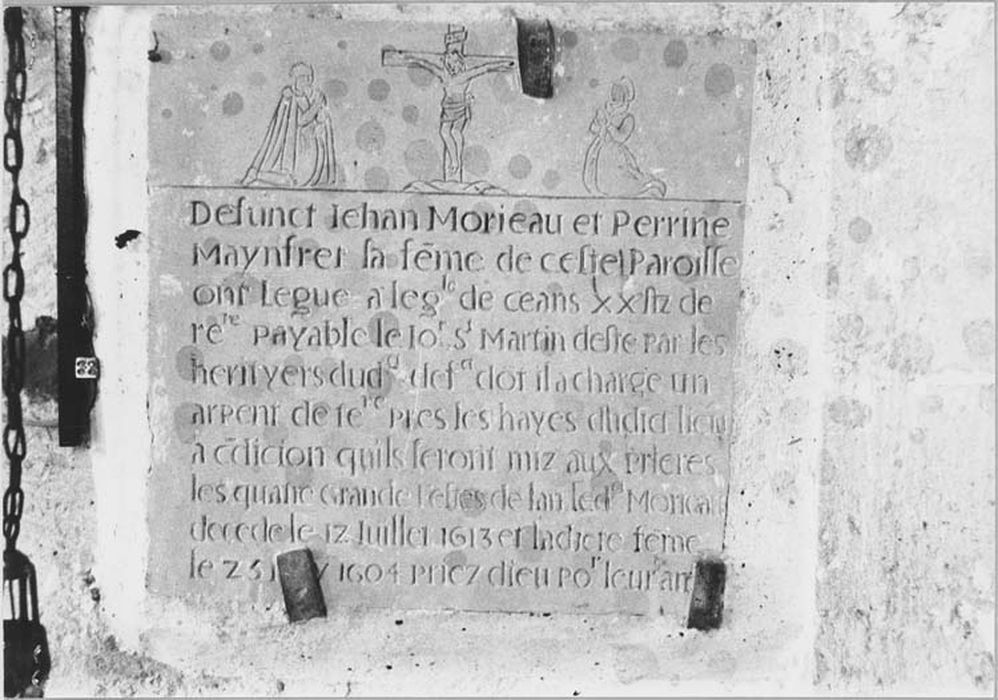 Defunct Iehan Morieau et Perrine
Maynfrer sa fẽme de ceste Paroisse
ont Legue a leglᵉ de ceans xxstz de
rẽʳᵉ Payable le Ioʳ Sᵗ Martin deste par les
herityers dudᵗ deft dot il a charge un
arpent de teʳᵉ Pres les hayes dudict lieu
a cõdicion quils seront miz aux Prieres
les quatre Grande festes de lan led Morieau
decede le 12 Juillet 1613 et ladicte fẽme
le 25 1604 Priez dieu Poʳ leur